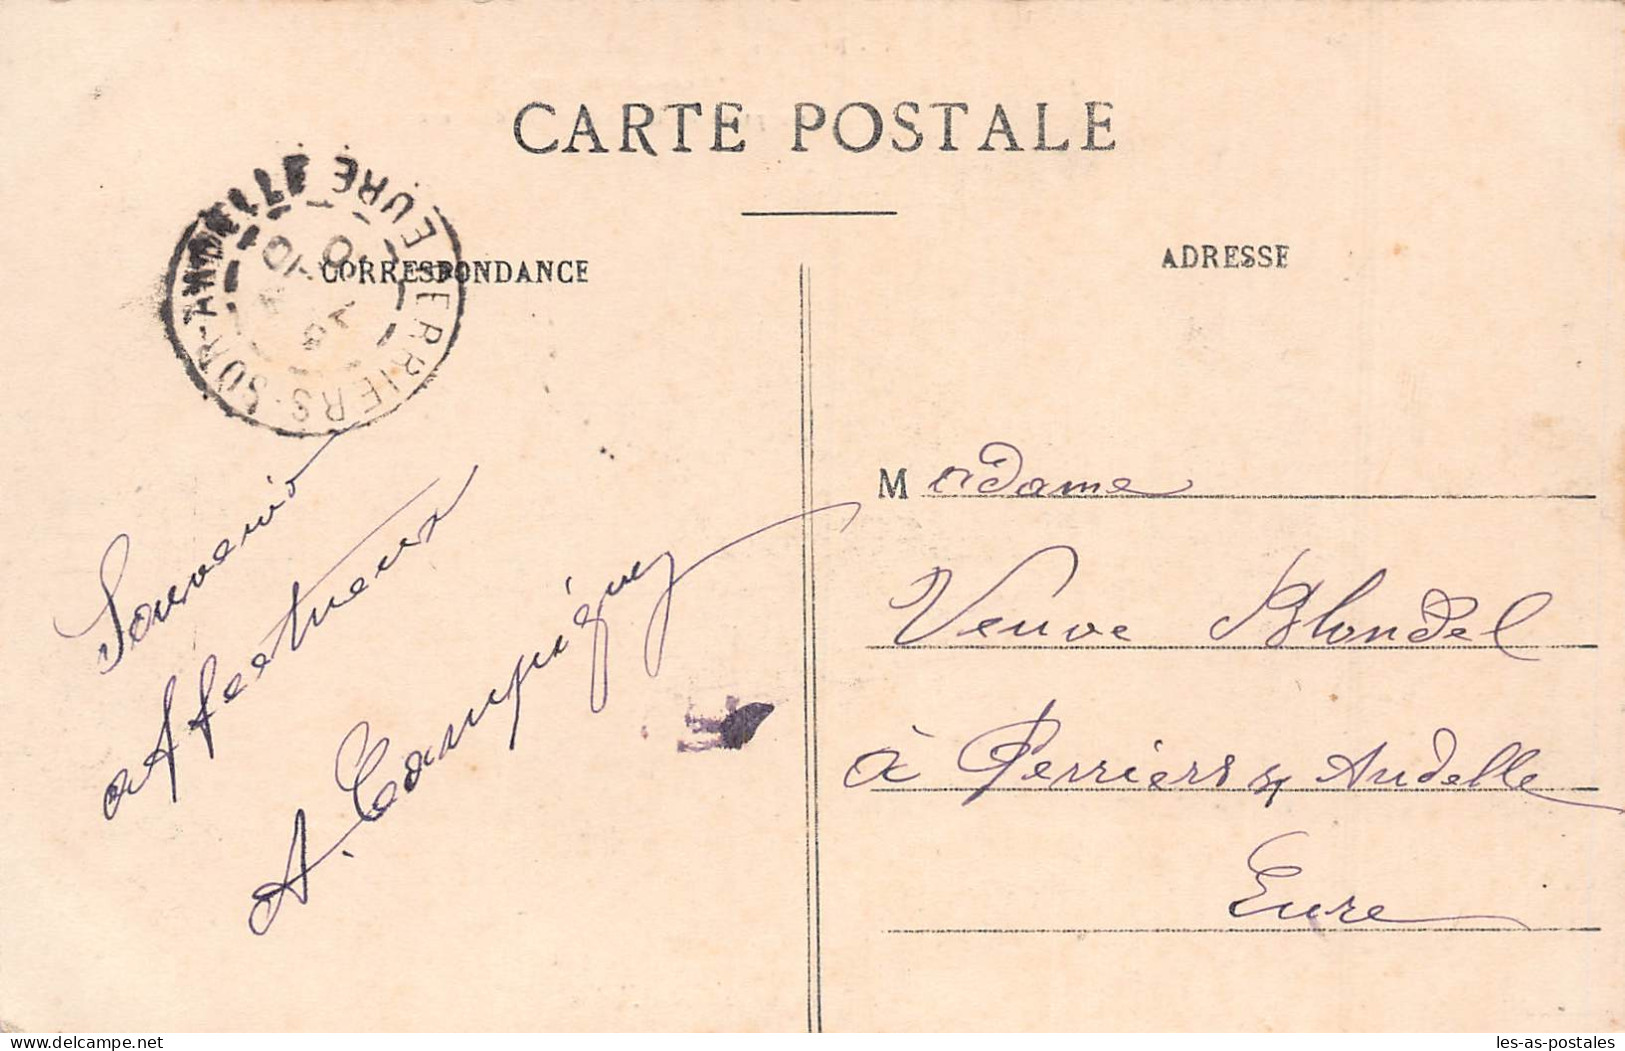 CARTE POSTALE
CORRESPONDANCE
ADRESSE
PERRIERS-SUR-ANDELLE EURE
Souvenir
Affectueux
A. Campigny
Madame
Veuve Blondel
à Perriers s/ Andelle
Eure
delcampe.net
les-as-postales